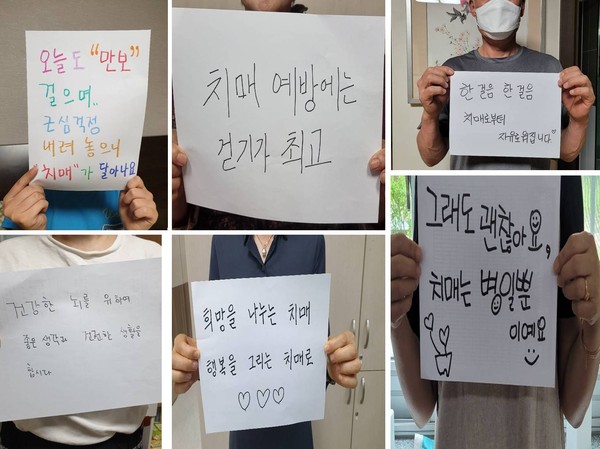 오늘도 "만보"
걸으며..
근심걱정
내려 놓으니
"치매"가 달아나요
치매 예방에는
걷기가 최고
한 걸음 한 걸음
치매로부터
자유로워집니다"
건강한 뇌를 위하여
좋은 생각과 건전한 생활을
합시다
희망을 나누는 치매
행복을 그리는 치매로
♡♡♡
그래도 괜찮아요,
치매는 병일뿐
이예요